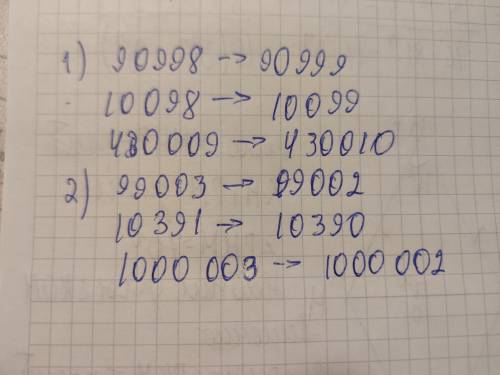 1) 90998 → 90999
10098 → 10099
430009 → 430010
2) 99003 → 99002
10391 → 10390
1000 003 → 1000 002